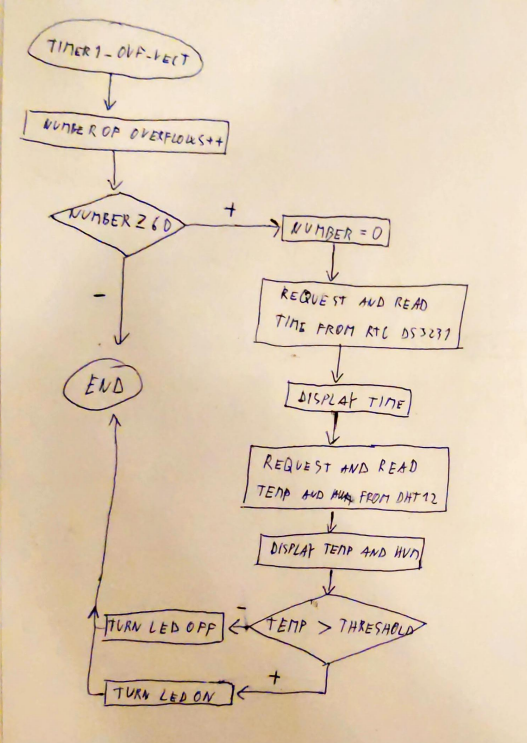 TIMER1_OVF_VECT
NUMBER OF OVERFLOWS++
NUMBER ≥ 60
+
NUMBER = 0
-
REQUEST AND READ
TIME FROM RTC DS3231
END
DISPLAY TIME
REQUEST AND READ
TEMP AND HUM FROM DHT12
DISPLAY TEMP AND HUM
-
TURN LED OFF
TEMP > THRESHOLD
+
TURN LED ON